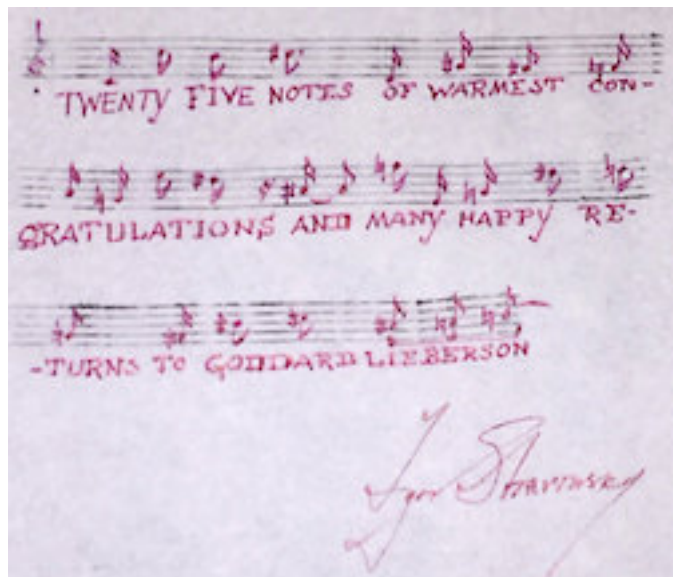 TWENTY FIVE NOTES OF WARMEST CON-
GRATULATIONS AND MANY HAPPY RE-
-TURNS TO GODDARD LIEBERSON
Igor Stravinsky